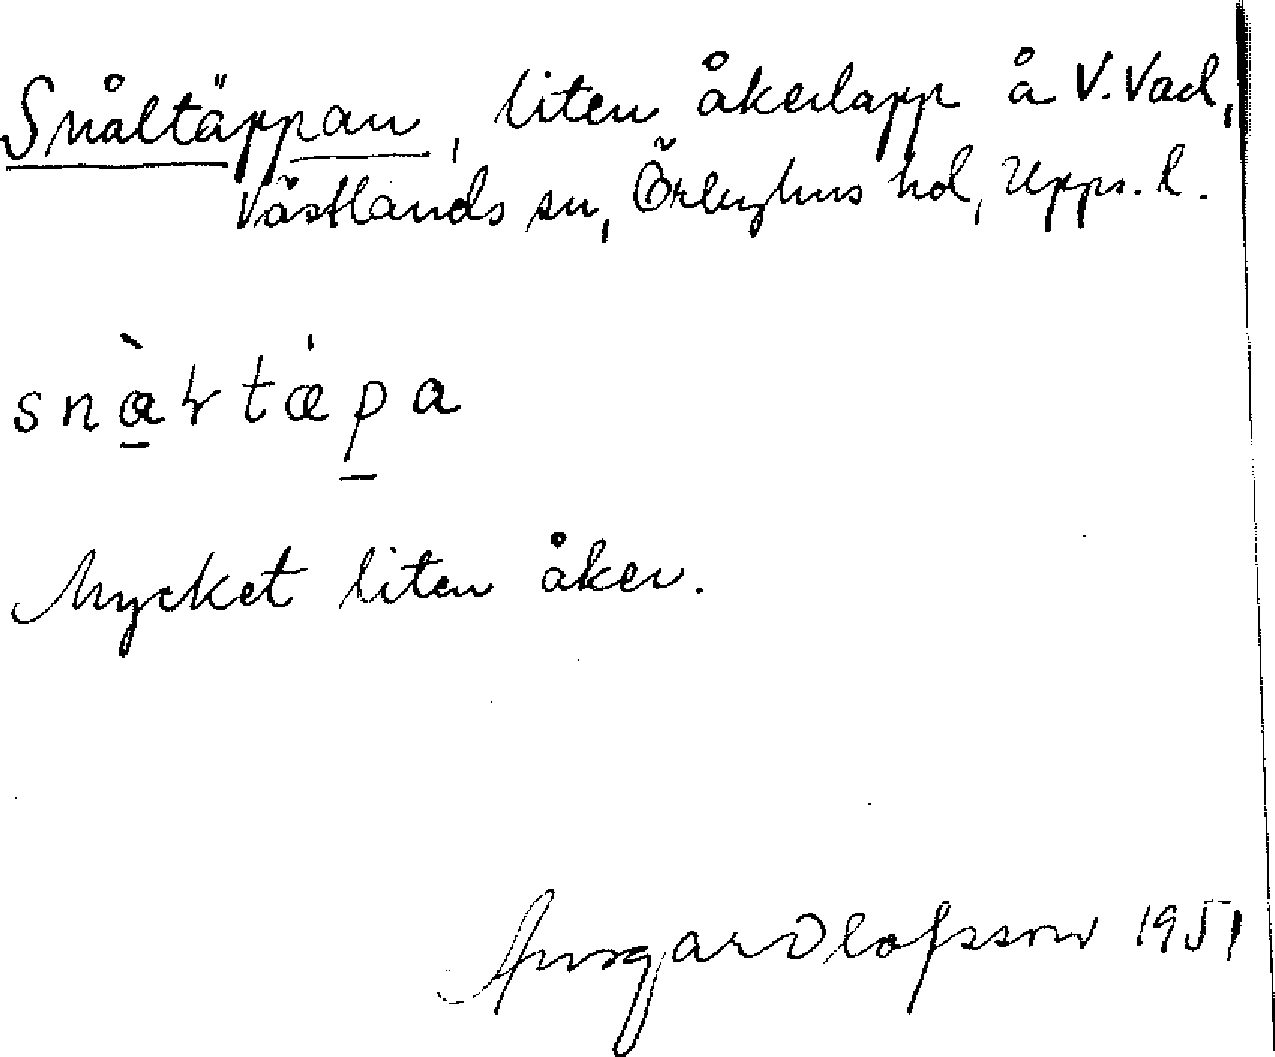 Snåltäppan, liten åkerlapp å V. Vad,
Västlands sn, Örbyhus hd, Upps. l.
Mycket liten åker.
Ansgar Olofsson 1951